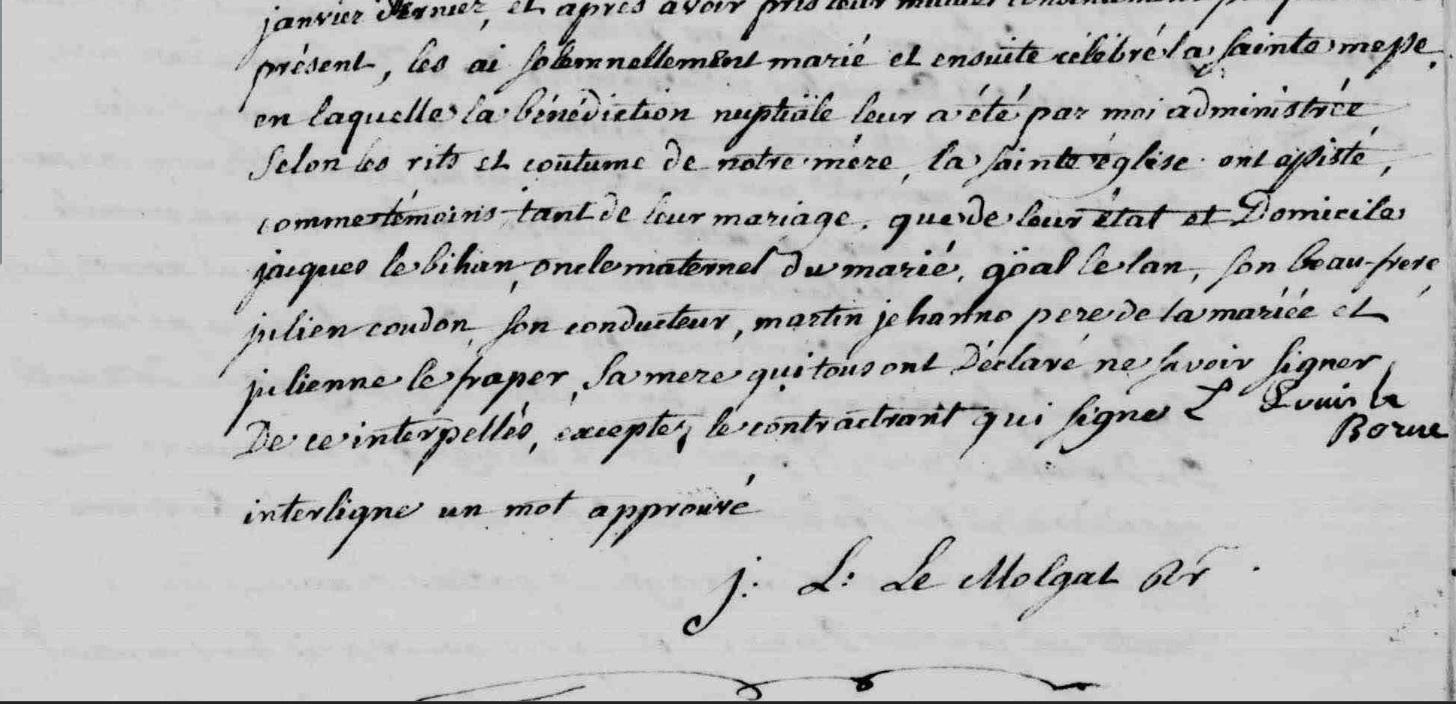 janvier dernier, et après avoir pris leur mutuel consentement
présent, les ai solemnellement marié et ensuite célébré la sainte messe,
en laquelle la bénédiction nuptiale leur a été par moi administrée
selon les rits et coutume de notre mère, la sainte église. ont assisté,
comme témoins tant de leur mariage, que de leur état et Domicile
jacques le bihan, oncle maternel du marié, le lan, son beau-frere,
julien coudon, son conducteur, martin jehanno pere de la mariée et
julienne le fraper, sa mere qui tous ont Déclaré ne savoir signer
De ce interpellés, excepté, le contractant qui signe Louis le
Borne
interligne un mot approuvé
j: L: Le Molgat Rr.